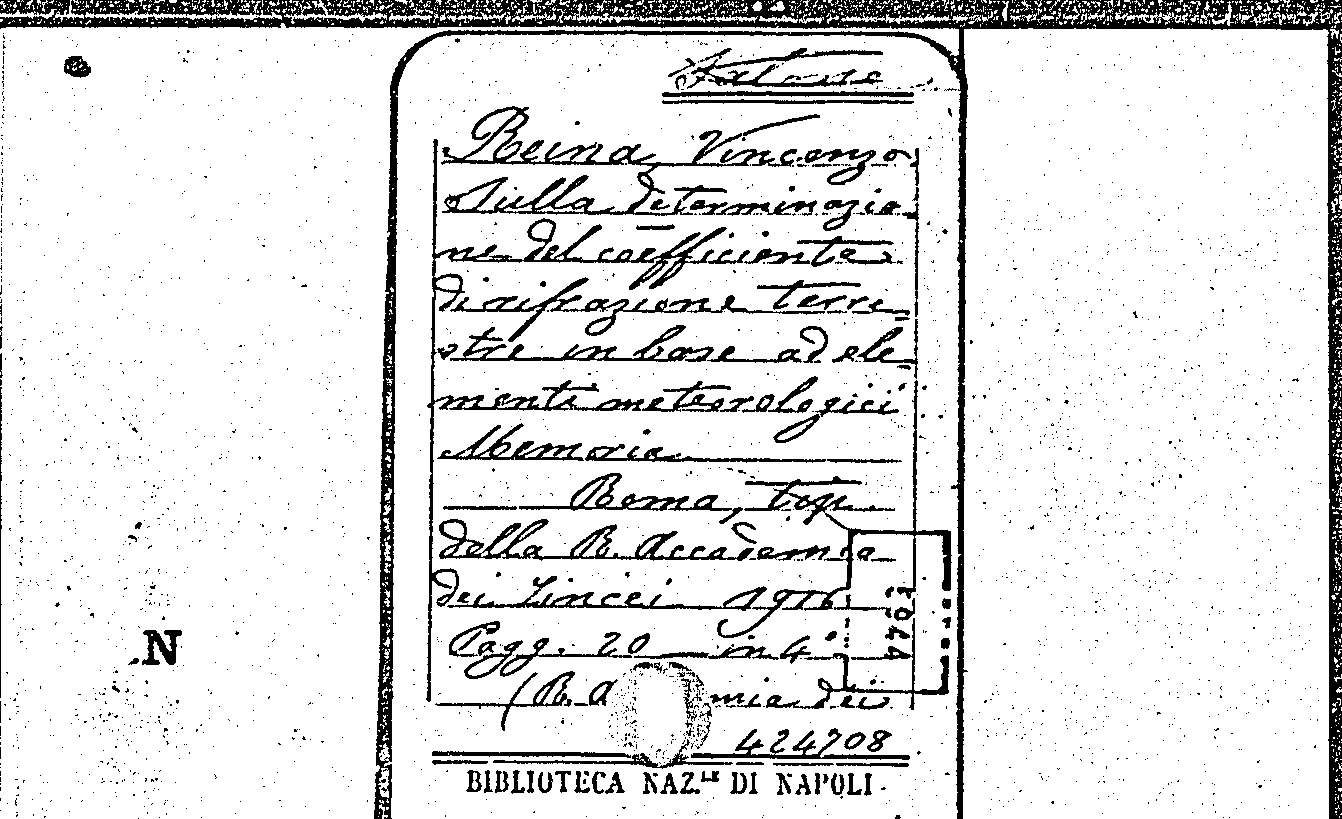 Salone
Reina, Vincenzo.
Sulla determinazio-
ne del coefficiente
di rifrazione terre-
stre in base ad ele-
menti meteorologici
Memoria
Roma, tip.
della R. Accademia
dei Lincei 1916
Pagg. 20 — in 4°
(R. A mia dei
424708
BIBLIOTECA NAZ.LE DI NAPOLI
N